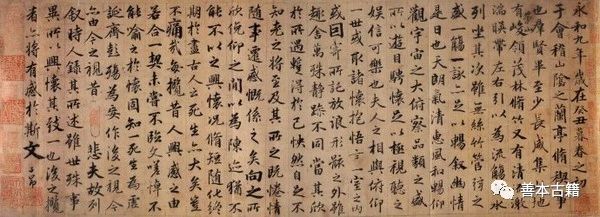 永和九年歲在癸丑暮春之初會
于會稽山陰之蘭亭脩禊事
也群賢畢至少長咸集此地
有峻領茂林脩竹又有清流激
湍暎帶左右引以為流觴曲水
列坐其次雖無絲竹管弦之
盛一觴一詠亦足以暢叙幽情
是日也天朗氣清惠風和暢仰
觀宇宙之大俯察品類之盛
所以遊目騁懷足以極視聽之
娛信可樂也夫人之相與俯仰
一世或取諸懷抱悟言一室之內
或因寄所託放浪形骸之外雖
趣舍萬殊靜躁不同當其欣
於所遇暫得於己快然自足不
知老之將至及其所之既惓情
隨事遷感慨係之矣向之所
欣俛仰之間以為陳迹猶不
能不以之興懷況脩短隨化終
期於盡古人云死生亦大矣豈
不痛哉每攬昔人興感之由
若合一契未嘗不臨文嗟悼不
能喻之於懷固知一死生為虛誕
齊彭殤為妄作後之視今
亦由今之視昔 悲夫故列
叙時人錄其所述雖世殊事
異所以興懷其致一也後之攬
者亦將有感於斯文 子昂
善本古籍